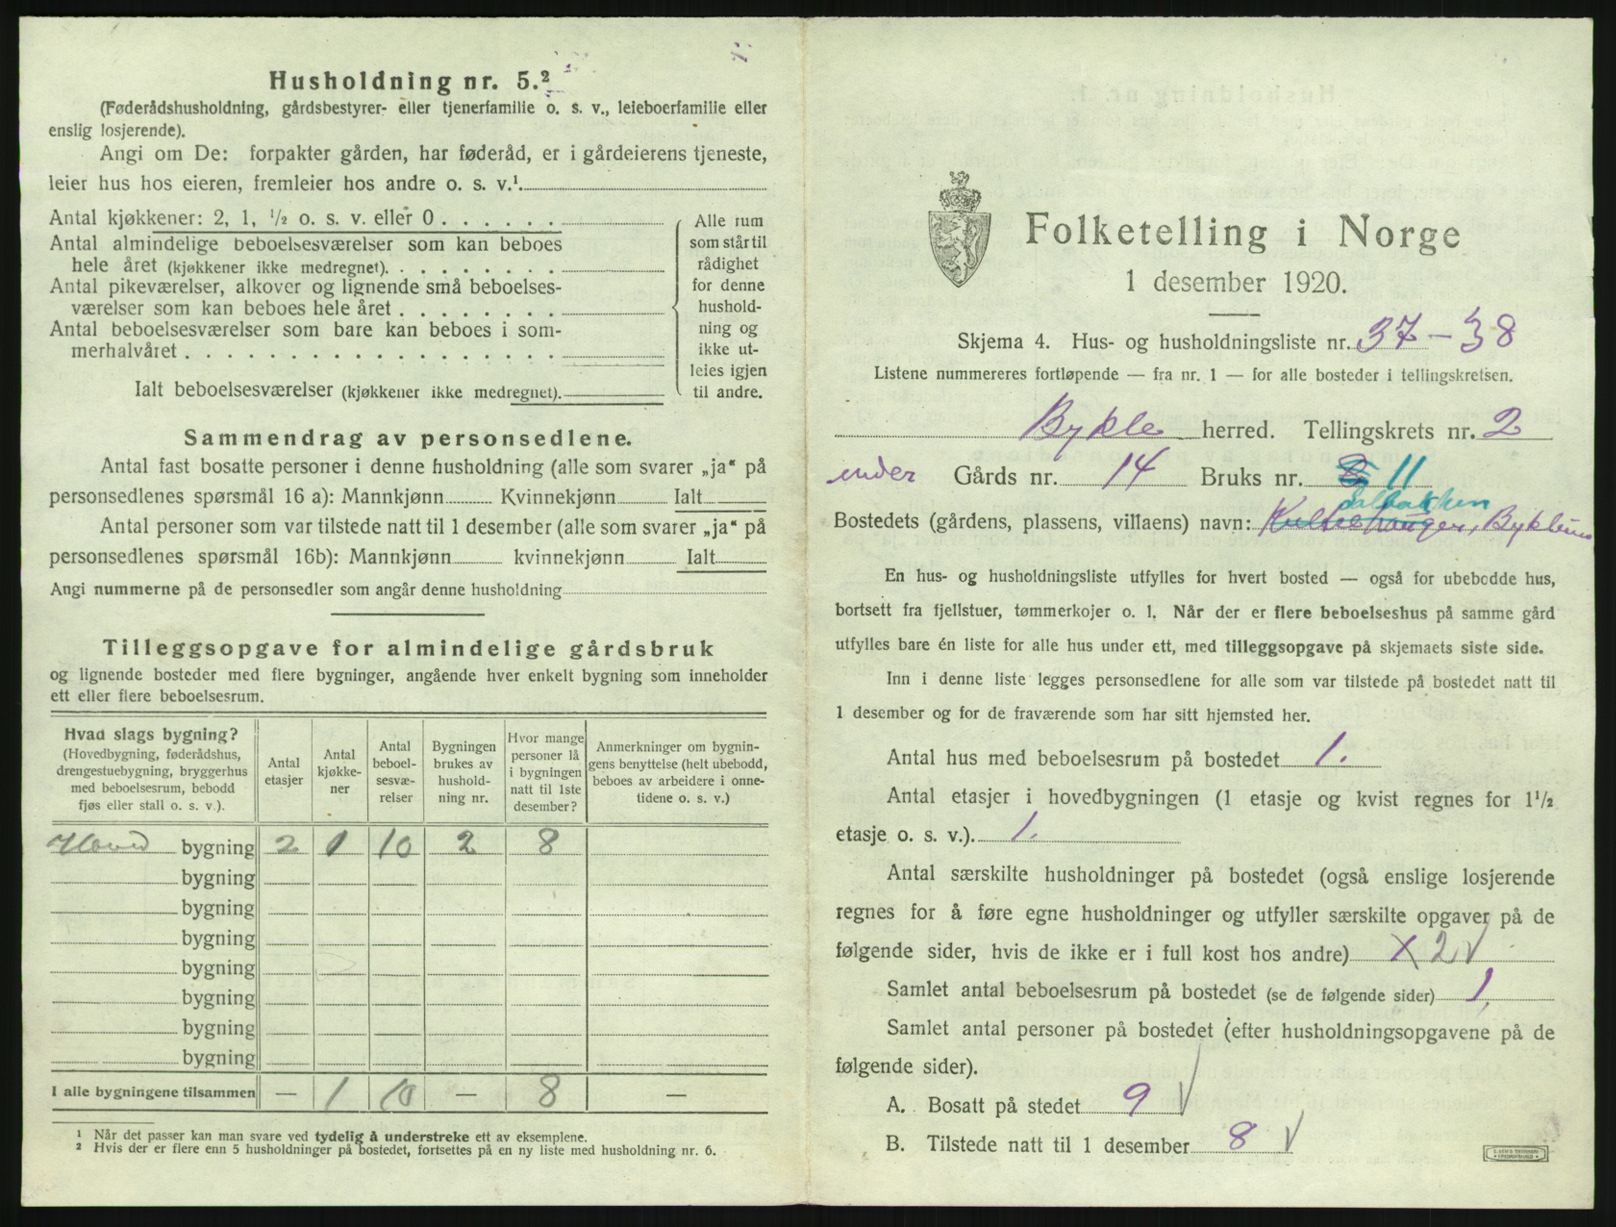 Husholdning nr. 5.²
(Føderådshusholdning, gårdsbestyrer- eller tjenerfamilie o. s. v., leieboerfamilie eller
enslig losjerende).
Angi om De: forpakter gården, har føderåd, er i gårdeierens tjeneste,
leier hus hos eieren, fremleier hos andre o. s. v.¹
Antal kjøkkener: 2, 1, ½ o. s. v. eller 0
Antal almindelige beboelsesværelser som kan beboes
hele året (kjøkkener ikke medregnet).
Antal pikeværelser, alkover og lignende små beboelses-
værelser som kan beboes hele året
Antal beboelsesværelser som bare kan beboes i som-
merhalvåret
Ialt beboelsesværelser (kjøkkener ikke medregnet).
Alle rum
som står til
rådighet
for denne
hushold-
ning og
ikke ut-
leies igjen
til andre.
Sammendrag av personsedlene.
Antal fast bosatte personer i denne husholdning (alle som svarer „ja“ på
personsedlenes spørsmål 16 a): Mannkjønn Kvinnekjønn Ialt
Antal personer som var tilstede natt til 1 desember (alle som svarer „ja“ på
personsedlenes spørsmål 16b): Mannkjønn kvinnekjønn Ialt
Angi nummerne på de personsedler som angår denne husholdning
Tilleggsopgave for almindelige gårdsbruk
og lignende bosteder med flere bygninger, angående hver enkelt bygning som inneholder
ett eller flere beboelsesrum.
Hvad slags bygning?
(Hovedbygning, føderådshus,
drengestuebygning, bryggerhus
med beboelsesrum, bebodd
fjøs eller stall o. s. v.).
Antal
etasjer
Antal
kjøkke-
ner
Antal
beboel-
sesvæ-
relser
Bygningen
brukes av
hushold-
ning nr.
Hvor mange
personer lå
i bygningen
natt til 1ste
desember?
Anmerkninger om bygnin-
gens benyttelse (helt ubebodd,
beboes av arbeidere i onne-
tidene o. s. v.)
Hoved bygning 2 1 10 2 8
bygning
bygning
bygning
bygning
bygning
bygning
bygning
I alle bygningene tilsammen — 1 10 — 8 —
¹ Når det passer kan man svare ved tydelig å understreke ett av eksemplene.
² Hvis der er flere enn 5 husholdninger på bostedet, fortsettes på en ny liste med husholdning nr. 6.
Folketelling i Norge
1 desember 1920.
Skjema 4. Hus- og husholdningsliste nr. 37 – 38
Listene nummereres fortløpende — fra nr. 1 — for alle bosteder i tellingskretsen.
Bykle herred. Tellingskrets nr. 2
under Gårds nr. 14 Bruks nr. 11
Dalbakken
Bostedets (gårdens, plassens, villaens) navn:
En hus- og husholdningsliste utfylles for hvert bosted — også for ubebodde hus,
bortsett fra fjellstuer, tømmerkojer o. l. Når der er flere beboelseshus på samme gård
utfylles bare én liste for alle hus under ett, med tilleggsopgave på skjemaets siste side.
Inn i denne liste legges personsedlene for alle som var tilstede på bostedet natt til
1 desember og for de fraværende som har sitt hjemsted her.
Antal hus med beboelsesrum på bostedet 1.
Antal etasjer i hovedbygningen (1 etasje og kvist regnes for 1½
etasje o. s. v.). 1.
Antal særskilte husholdninger på bostedet (også enslige losjerende
regnes for å føre egne husholdninger og utfyller særskilte opgaver på de
følgende sider, hvis de ikke er i full kost hos andre) x 2 √
Samlet antal beboelsesrum på bostedet (se de følgende sider) 1.
Samlet antal personer på bostedet (efter husholdningsopgavene på de
følgende sider).
A. Bosatt på stedet 9 √
B. Tilstede natt til 1 desember 8 √